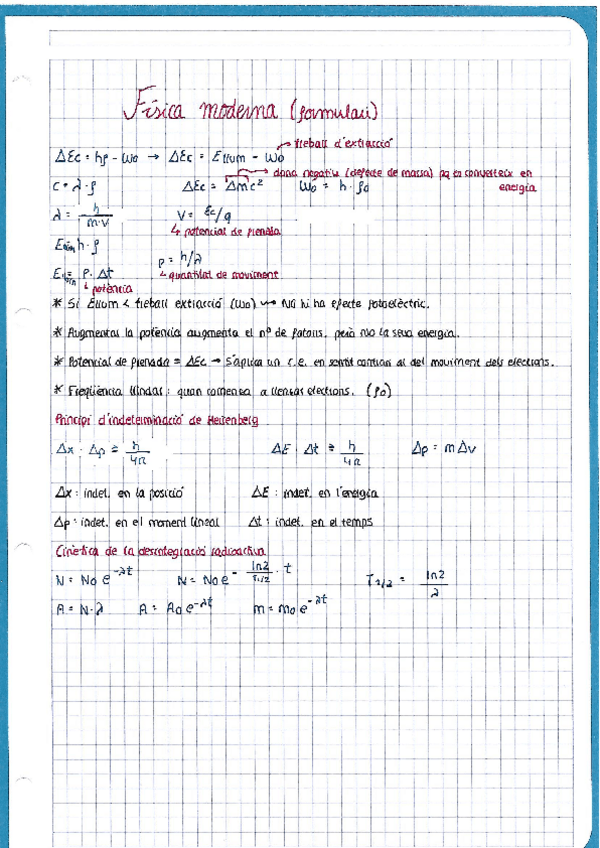 Física moderna (formulari)
treball d'extracció
ΔEc = hf - Wo → ΔEc = Ellum - Wo
dona negatiu (defecte de massa) pq es converteix en energia
c = λ · f ΔEc = Δmc² Wo = h · fo
λ = h / m·v V = Ec/q
↳ potencial de frenada
Ellum = h · f p = h/λ
Ellum = P · Δt ↳ quantitat de moviment
↓ potència
* Si Ellum < treball extracció (Wo) → No hi ha efecte fotoelèctric.
* Augmentar la potència augmenta el nº de fotons, però no la seua energia.
* Potencial de frenada = ΔEc → S'aplica un c.e. en sentit contrari al del moviment dels electrons.
* Freqüència llindar: quan comença a llençar electrons. (fo)
Principi d'indeterminació de Heisenberg
Δx · Δp ≥ h / 4π ΔE · Δt ≥ h / 4π Δp = mΔv
Δx: indet. en la posició ΔE: indet. en l'energia
Δp: indet. en el moment lineal Δt: indet. en el temps
Cinètica de la desintegració radioactiva
N = No e^-λt N = No e^- ln2 / T1/2 · t T1/2 = ln2 / λ
A = N·λ A = Ao e^-λt m = mo e^-λt